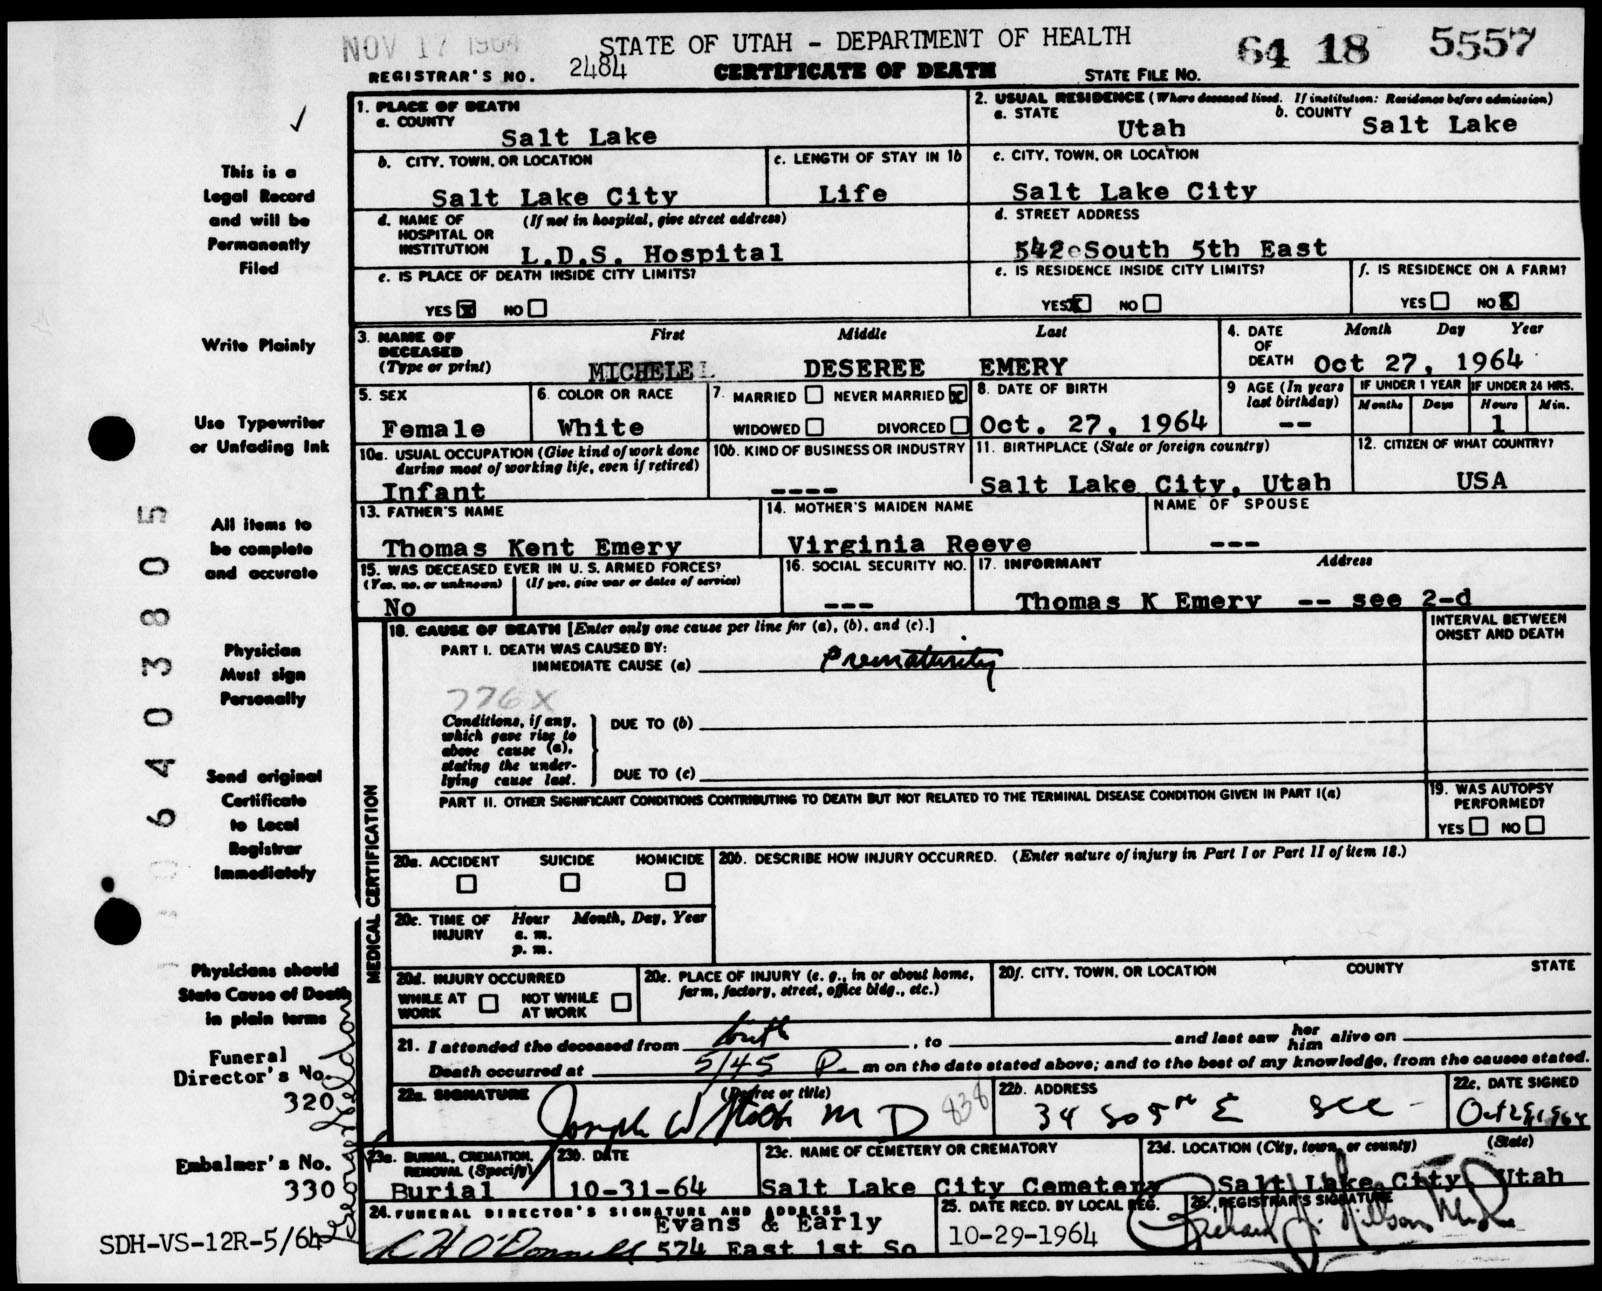 NOV 17 1964
STATE OF UTAH - DEPARTMENT OF HEALTH
64 18 5557
REGISTRAR'S NO. 2484
CERTIFICATE OF DEATH
STATE FILE NO.
1. PLACE OF DEATH
a. COUNTY
Salt Lake
2. USUAL RESIDENCE (Where deceased lived. If institution: Residence before admission)
a. STATE
Utah
b. COUNTY
Salt Lake
b. CITY, TOWN, OR LOCATION
Salt Lake City
c. LENGTH OF STAY IN 1b
Life
c. CITY, TOWN, OR LOCATION
Salt Lake City
d. NAME OF HOSPITAL OR INSTITUTION
(If not in hospital, give street address)
L.D.S. Hospital
d. STREET ADDRESS
542 South 5th East
e. IS PLACE OF DEATH INSIDE CITY LIMITS?
YES X NO
e. IS RESIDENCE INSIDE CITY LIMITS?
YES X NO
f. IS RESIDENCE ON A FARM?
YES NO X
3. NAME OF DECEASED
(Type or print)
First Middle Last
MICHELE DESEREE EMERY
4. DATE OF DEATH
Month Day Year
Oct 27, 1964
5. SEX
Female
6. COLOR OR RACE
White
7. MARRIED NEVER MARRIED X
WIDOWED DIVORCED
8. DATE OF BIRTH
Oct. 27, 1964
9 AGE (In years last birthday)
--
IF UNDER 1 YEAR
Months Days
IF UNDER 24 HRS.
Hours Min.
1
10a. USUAL OCCUPATION (Give kind of work done during most of working life, even if retired)
Infant
10b. KIND OF BUSINESS OR INDUSTRY
----
11. BIRTHPLACE (State or foreign country)
Salt Lake City, Utah
12. CITIZEN OF WHAT COUNTRY?
USA
13. FATHER'S NAME
Thomas Kent Emery
14. MOTHER'S MAIDEN NAME
Virginia Reeve
NAME OF SPOUSE
---
15. WAS DECEASED EVER IN U.S. ARMED FORCES?
(Yes, no, or unknown) (If yes, give war or dates of service)
No
16. SOCIAL SECURITY NO.
---
17. INFORMANT Address
Thomas K Emery -- see 2-d
MEDICAL CERTIFICATION
18. CAUSE OF DEATH [Enter only one cause per line for (a), (b), and (c).]
INTERVAL BETWEEN ONSET AND DEATH
PART I. DEATH WAS CAUSED BY:
IMMEDIATE CAUSE (a) Prematurity
776X
Conditions, if any, which gave rise to above cause (a), stating the underlying cause last.
DUE TO (b)
DUE TO (c)
PART II. OTHER SIGNIFICANT CONDITIONS CONTRIBUTING TO DEATH BUT NOT RELATED TO THE TERMINAL DISEASE CONDITION GIVEN IN PART I(a)
19. WAS AUTOPSY PERFORMED?
YES NO
20a. ACCIDENT SUICIDE HOMICIDE
20b. DESCRIBE HOW INJURY OCCURRED. (Enter nature of injury in Part I or Part II of item 18.)
20c. TIME OF INJURY
Hour Month, Day, Year
a. m.
p. m.
20d. INJURY OCCURRED
WHILE AT WORK NOT WHILE AT WORK
20e. PLACE OF INJURY (e. g., in or about home, farm, factory, street, office bldg., etc.)
20f. CITY, TOWN, OR LOCATION COUNTY STATE
21. I attended the deceased from birth, to and last saw her him alive on
Death occurred at 5/45 P. m on the date stated above; and to the best of my knowledge, from the causes stated.
22a. SIGNATURE (Degree or title)
Joseph W M D
838
22b. ADDRESS
34 So 5th E SLC
22c. DATE SIGNED
Oct 29, 1964
23a. BURIAL, CREMATION, REMOVAL (Specify)
Burial
23b. DATE
10-31-64
23c. NAME OF CEMETERY OR CREMATORY
Salt Lake City Cemetery
23d. LOCATION (City, town, or county) (State)
Salt Lake City Utah
24. FUNERAL DIRECTOR'S SIGNATURE AND ADDRESS
Evans & Early
R H O'Donnell 574 East 1st So
25. DATE RECD. BY LOCAL REG.
10-29-1964
26. REGISTRAR'S SIGNATURE
This is a
Legal Record
and will be
Permanently
Filed
Write Plainly
Use Typewriter
or Unfading Ink
All items to
be complete
and accurate
Physician
Must sign
Personally
Send original
Certificate
to Local
Registrar
Immediately
Physicians should
State Cause of Death
in plain terms
Funeral
Director's No.
320
Embalmer's No.
330
SDH-VS-12R-5/64
6403805